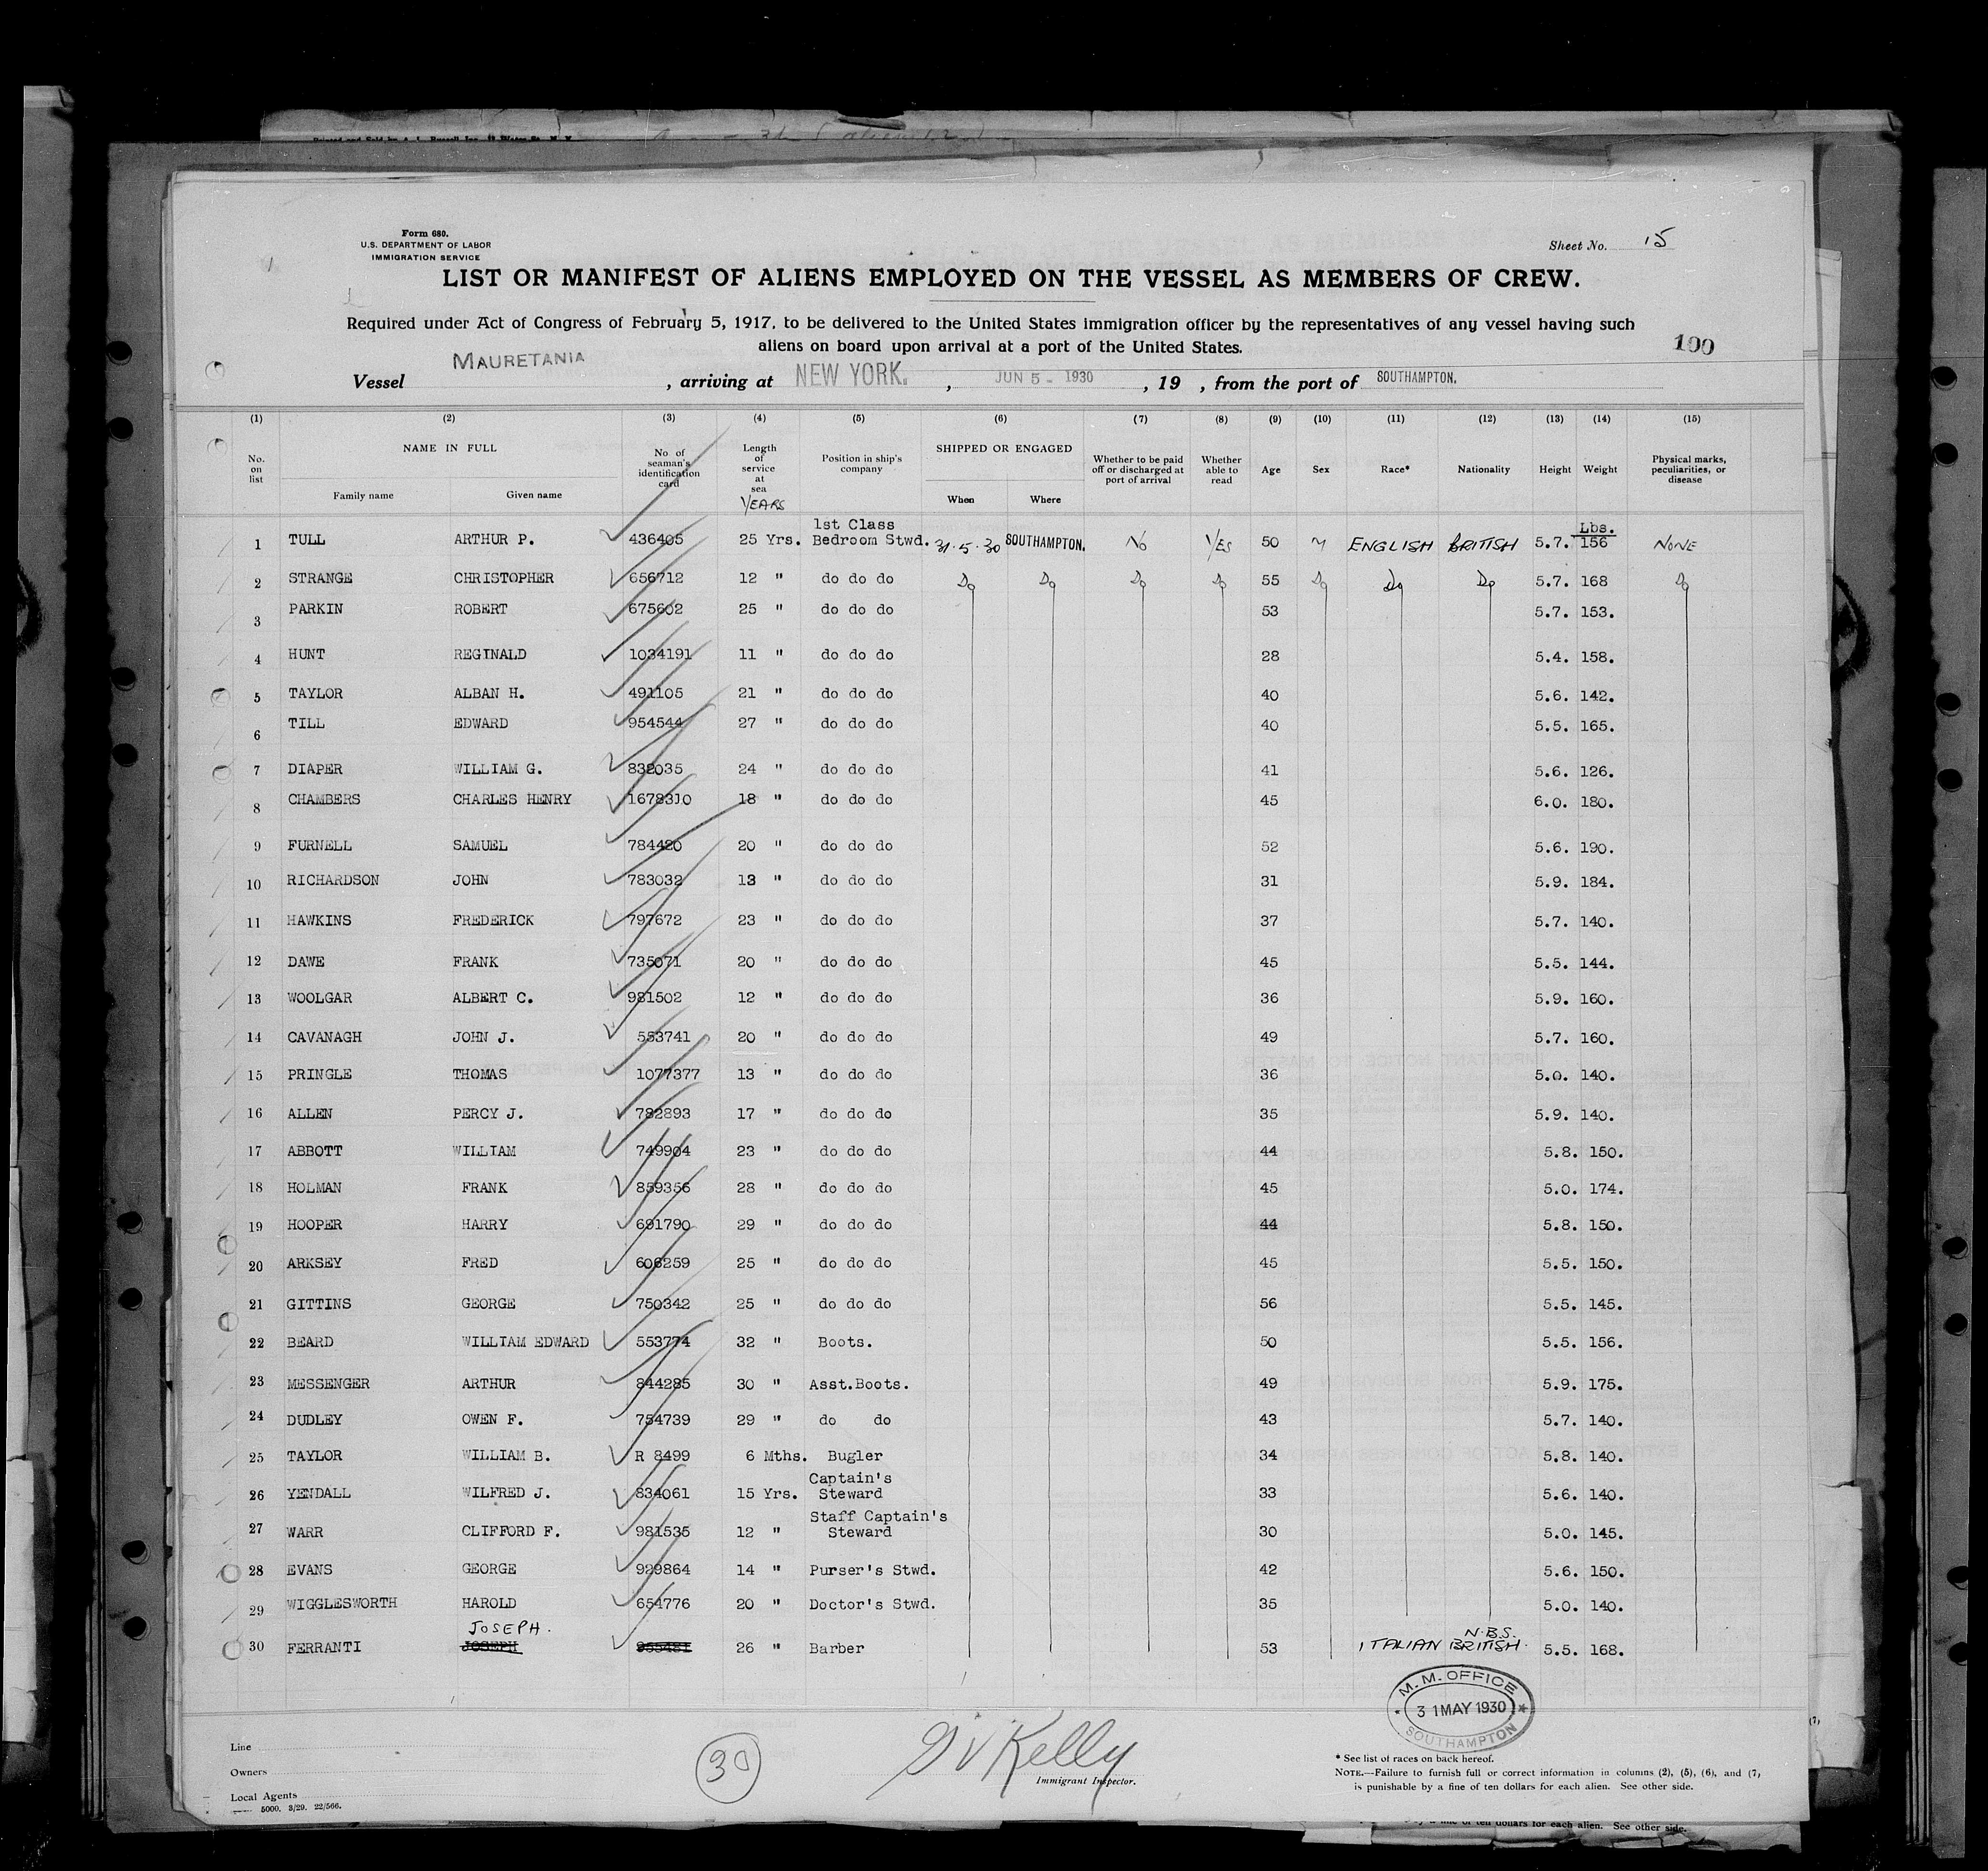 Form 680.
U.S. DEPARTMENT OF LABOR
IMMIGRATION SERVICE
Sheet No. 15
LIST OR MANIFEST OF ALIENS EMPLOYED ON THE VESSEL AS MEMBERS OF CREW.
Required under Act of Congress of February 5, 1917, to be delivered to the United States immigration officer by the representatives of any vessel having such
aliens on board upon arrival at a port of the United States.
100
Vessel MAURETANIA, arriving at NEW YORK., JUN 5 - 1930, 19 , from the port of SOUTHAMPTON.
(1) (2) (3) (4) (5) (6) (7) (8) (9) (10) (11) (12) (13) (14) (15)
No. on list
NAME IN FULL
Family name Given name
No. of seaman's identification card
Length of service at sea
YEARS
Position in ship's company
SHIPPED OR ENGAGED
When Where
Whether to be paid off or discharged at port of arrival
Whether able to read
Age
Sex
Race*
Nationality
Height
Weight
Physical marks, peculiarities, or disease
1st Class Lbs.
1 TULL ARTHUR P. 436405 25 Yrs. Bedroom Stwd. 31.5.30 SOUTHAMPTON. No YES 50 M ENGLISH BRITISH 5.7. 156 NONE
2 STRANGE CHRISTOPHER 656712 12 " do do do Do Do Do Do 55 Do Do Do 5.7. 168 Do
3 PARKIN ROBERT 675602 25 " do do do 53 5.7. 153.
4 HUNT REGINALD 1034191 11 " do do do 28 5.4. 158.
5 TAYLOR ALBAN H. 491105 21 " do do do 40 5.6. 142.
6 TILL EDWARD 954544 27 " do do do 40 5.5. 165.
7 DIAPER WILLIAM G. 832035 24 " do do do 41 5.6. 126.
8 CHAMBERS CHARLES HENRY 18 " do do do 45 6.0. 180.
9 FURNELL SAMUEL 784420 20 " do do do 52 5.6. 190.
10 RICHARDSON JOHN 783032 13 " do do do 31 5.9. 184.
11 HAWKINS FREDERICK 797672 23 " do do do 37 5.7. 140.
12 DAWE FRANK 735071 20 " do do do 45 5.5. 144.
13 WOOLGAR ALBERT C. 981502 12 " do do do 36 5.9. 160.
14 CAVANAGH JOHN J. 553741 20 " do do do 49 5.7. 160.
15 PRINGLE THOMAS 1077377 13 " do do do 36 5.0. 140.
16 ALLEN PERCY J. 782893 17 " do do do 35 5.9. 140.
17 ABBOTT WILLIAM 749904 23 " do do do 44 5.8. 150.
18 HOLMAN FRANK 859356 28 " do do do 45 5.0. 174.
19 HOOPER HARRY 691790 29 " do do do 44 5.8. 150.
20 ARKSEY FRED 606259 25 " do do do 45 5.5. 150.
21 GITTINS GEORGE 750342 25 " do do do 56 5.5. 145.
22 BEARD WILLIAM EDWARD 553774 32 " Boots. 50 5.5. 156.
23 MESSENGER ARTHUR 844285 30 " Asst.Boots. 49 5.9. 175.
24 DUDLEY OWEN F. 754739 29 " do do 43 5.7. 140.
25 TAYLOR WILLIAM B. R 8499 6 Mths. Bugler 34 5.8. 140.
Captain's
26 YENDALL WILFRED J. 834061 15 Yrs. Steward 33 5.6. 140.
Staff Captain's
27 WARR CLIFFORD F. 981535 12 " Steward 30 5.0. 145.
28 EVANS GEORGE 929864 14 " Purser's Stwd. 42 5.6. 150.
29 WIGGLESWORTH HAROLD 654776 20 " Doctor's Stwd. 35 5.0. 140.
JOSEPH. N.B.S.
30 FERRANTI JOSEPH 26 " Barber 53 ITALIAN BRITISH. 5.5. 168.
M. M. OFFICE
31 MAY 1930
SOUTHAMPTON
Line
Owners
Local Agents
5000. 3/29. 22/566.
30
Kelly
Immigrant Inspector.
* See list of races on back hereof.
NOTE.—Failure to furnish full or correct information in columns (2), (5), (6), and (7)
is punishable by a fine of ten dollars for each alien. See other side.
ten dollars for each alien. See other side.